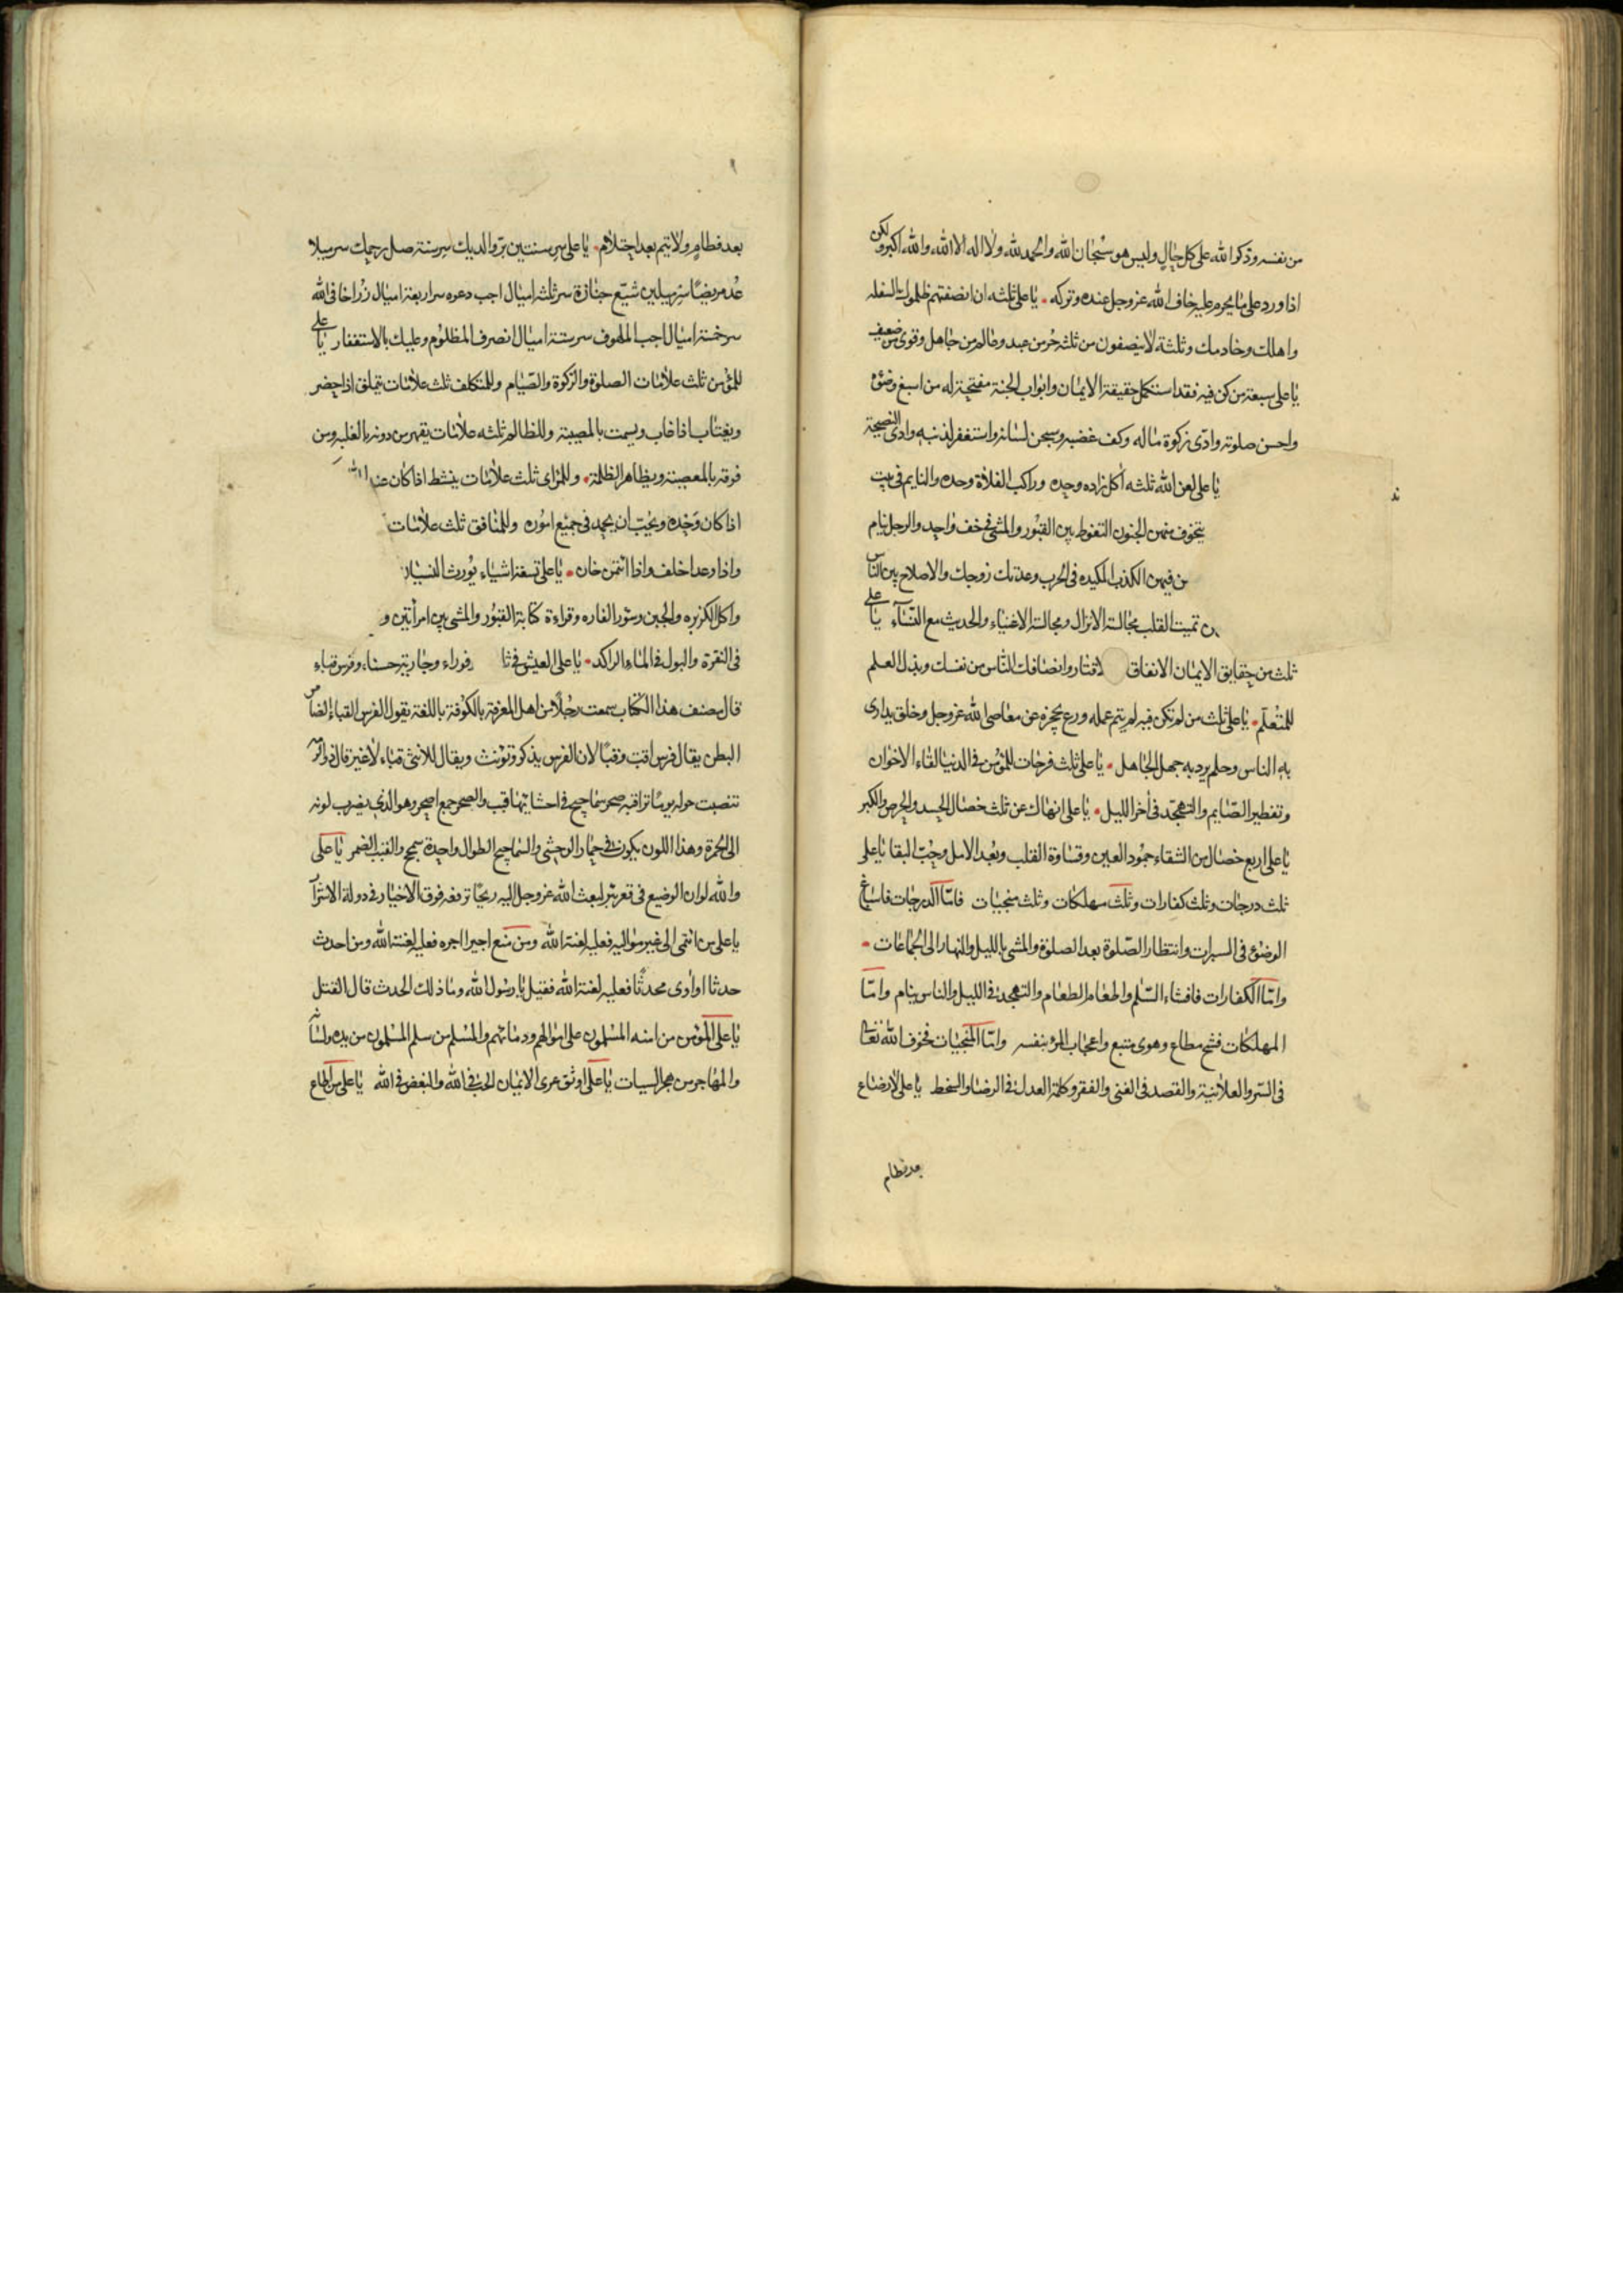 من نفسه وذكر الله على كل حال وليس هو سبحان الله والحمد لله ولا اله الا الله والله اكبر ولكن
اذا ورد على ما يحرم عليه خاف الله عز وجل عنده وتركه يا على ثلثه ان انصفتهم ظلموك السفله
واهلك وخادمك وثلثة لا ينصفون من ثلثه حر من عبد وعالم من جاهل وقوى من ضعيف
يا على سبعة من كن فيه فقد استكمل حقيقة الايمان وابواب الجنة مفتحة له من اسبغ وضوئه
واحسن صلوته وادى زكوة ماله وكف غضبه وسجن لسانه واستغفر لذنبه وادى النصيحة
يا على لعن الله ثلثه اكل زاده وحده وراكب الفلاة وحده والنايم فى بيت
يتخوف منهن الجنون التغوط بين القبور والمشى فى خف واحد والرجل ينام
ن فيهن الكذب المكيده فى الحرب وعدتك زوجك والاصلاح بين الناس
تميت القلب مجالسة الانزال ومجالسة الاغنياء والحديث مع النساء يا على
ثلث من حقايق الايمان الانفاق الاقتار وانصافك الناس من نفسك وبذل العلم
للمتعلم يا على ثلث من لم تكن فيه لم يتم عمله ورع يحجزه عن معاصى الله عز وجل وخلق يدارى
به الناس وحلم يرد به جهل الجاهل يا على ثلث فرحات للمؤمن فى الدنيا لقاء الاخوان
وتفطير الصايم والتهجد فى اخر الليل يا على انهاك عن ثلث خصال الحسد والحرص والكبر
يا على اربع خصال من الشقاء جمود العين وقساوة القلب وبعد الامل وحب البقا يا على
ثلث درجات وثلث كفارات وثلث مهلكات وثلث منجيات فاما الدرجات فاسباغ
الوضوء فى السبرات وانتظار الصلوة بعد الصلوة والمشى بالليل والنهار الى الجماعات
واما الكفارات فافشاء السلم واطعام الطعام والتهجد فى الليل والناس ينام واما
المهلكات فشح مطاع وهوى متبع واعجاب المرء بنفسه واما المنجيات فخوف الله تعالى
فى السر والعلانية والقصد فى الغنى والفقر وكلمة العدل فى الرضا والسخط يا على لا رضاع
بعد فطام
بعد فطام ولا يتم بعد احتلام يا على سر سنتين بر والديك سر سنة صل رحمك سر ميلا
عد مريضا سر ميلين شيع جنازة سر ثلثة اميال اجب دعوه سر اربعة اميال زر اخا فى الله
سر خمسة اميال اجب الملهوف سر ستة اميال انصر المظلوم وعليك بالاستغفار يا على
للمؤمن ثلث علامات الصلوة والزكوة والصيام وللمتكلف ثلث علامات يتملق اذا حضر
ويغتاب اذا غاب ويشمت بالمصيبة وللظالم ثلثه علامات يقهر من دونه بالغلبه ومن
فوقه بالمعصية ويظاهر الظلمة وللمرائ ثلث علامات ينشط اذا كان عند
اذا كان وحده ويحب ان يحمد فى جميع اموره وللمنافق ثلث علامات
واذا وعد اخلف واذا ائتمن خان يا على تسعة اشياء يورث النسيان
واكل الكزبره والجبن وسؤر الفاره وقراءة كتابة القبور والمشى بين امرأتين و
فى النقرة والبول فى الماء الراكد يا على العيش فى ثا قوراء وجارية حسناء وفرس قباء
قال مصنف هذا الكتاب سمعت رجلا من اهل المعرفة بالكوفة باللغة يقول الفرس القباء الضامر
البطن يقال فرس اقب وقبا لان الفرس يذكر وتؤنث ويقال للانثى قباء لا غير قال ذو الرمه
تنصبت حوله يوما تراقبه صحر سماحيج فى احشائها قبب والصحر جمع اصحر وهو الذى يضرب لونه
الى الحمرة وهذا اللون يكون فى حمار الوحشى والسماحيج الطوال واحدة سمحج والقبب الضمر يا على
والله لو ان الوضيع فى قعر بئر لبعث الله عز وجل اليه ريحا ترفعه فوق الاخيار فى دولة الاشرار
يا على من انتمى الى غير مواليه فعليه لعنة الله ومن منع اجيرا اجره فعليه لعنة الله ومن احدث
حدثا او اوى محدثا فعليه لعنة الله فقيل يا رسول الله وما ذلك الحدث قال القتل
يا على المؤمن من امنه المسلمون على اموالهم ودمائهم والمسلم من سلم المسلمون من يده ولسانه
والمهاجر من هجر السيات يا على اوثق عرى الايمان الحب فى الله والبغض فى الله يا على من اطاع